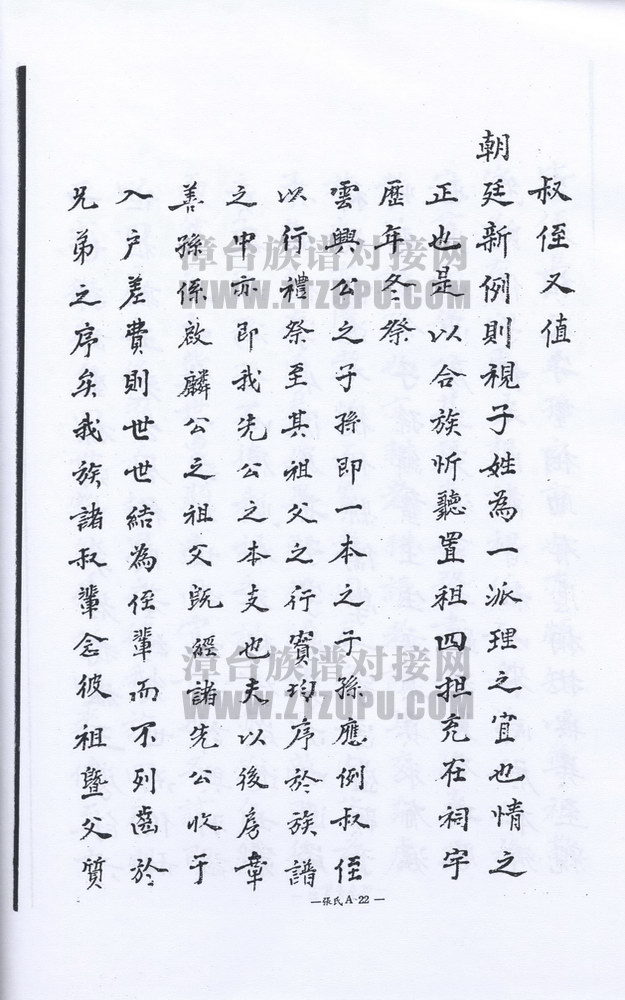 叔侄又值
朝廷新例則視子姓為一派理之宜也情之
正也是以合族忻聽置祖四担充在祠宇
歷年冬祭
雲興公之子孫即一本之子孫應例叔侄
以行禮祭至其祖父之行實均序於族譜
之中亦即我先公之本支也夫以後房章
善孫係啟麟公之祖父既經諸先公收于
入户差費則世世結為侄輩而不列齒於
兄弟之序矣我族諸叔輩念彼祖暨父質
漳台族谱对接网
WWW.ZTZUPU.COM
漳台族谱对接网
WWW.ZTZUPU.COM
—張氏A-22—